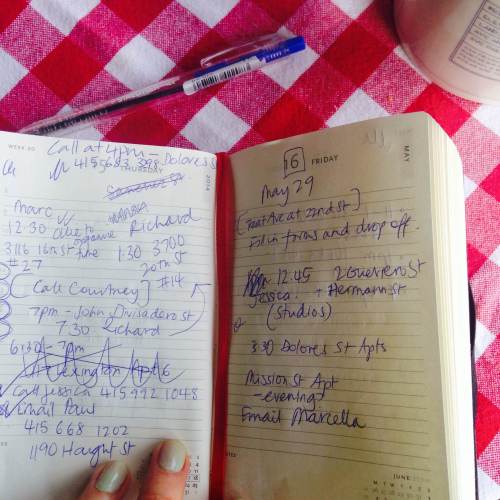 WEEK 20
Call at 4pm -
415 683 398 Dolores St
THURSDAY
2014
Marc
12-30 Call to organise time
Richard
3116 16th St
1:30 3700 20th St
#27
#14
[Call Courtney]
7pm - John Divisadero St
7.30 Richard
6:30 - 7pm
Lexington Apt 6
Call Jessica 415 992 1048
Email Paul
415 668 1202
1190 Haight St
16 FRIDAY
MAY
May 29
at 22nd St]
Fill in forms and drop off.
12.45 2 Guerrero St
Jessica. + Hermann St
(Studios)
3.30 Dolores St Apts
Mission St Apt
- evening?
Email Marcella
NOTES
JUNE
M T W T F S S